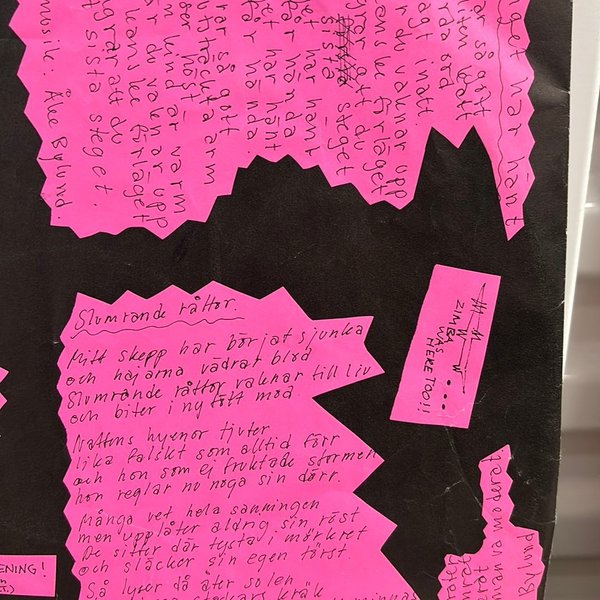 nget har hänt
ar så gott
rda ord
ågt inatt
är du vaknar upp
anske förläget
att du
sista steget
et har hänt
får hända
et har hänt
får hända.
rar så gott
utträckta arm
in kind är varm
ber höst
är du vaknar upp
kanske förläget
ngrar att du
t sista steget.
musik: Åke Bylund.
Slumrande råttor.
Mitt skepp har börjat sjunka
och hajarna vädrat blod
Slumrande råttor vaknar till liv
och biter i nyfött mod.
Nattens hyenor tjuter
lika falskt som alltid förr
och hon som ej fruktade stormen
hon reglar nu noga sin dörr.
Många vet hela sanningen
men upplåter aldrig sin röst
De sitter där tysta i mörkret
och släcker sin egen törst.
Så lyser då åter solen
kräk
ZIMBA
WAS
HERE TOO!!
ENING!
Bylund